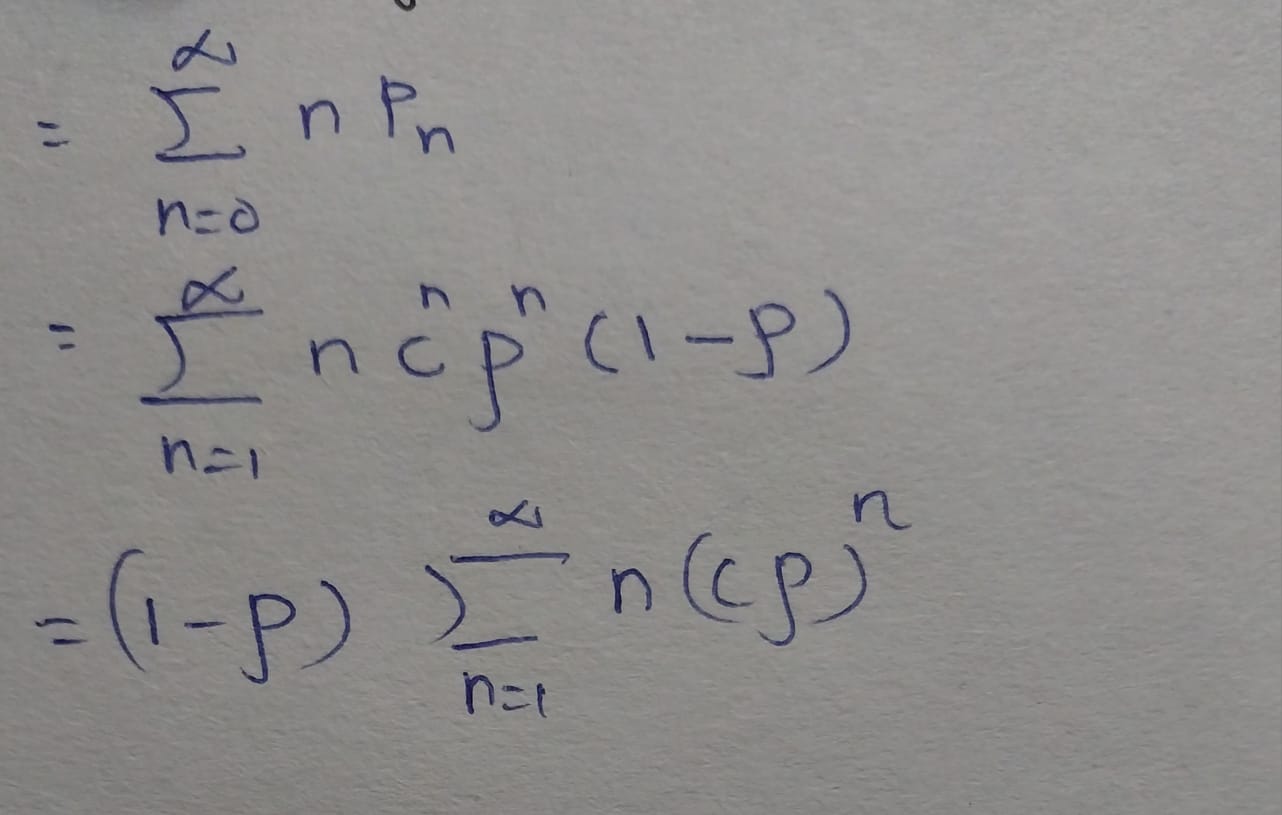 = ∑_{n=0}^{∝} n P_n
= ∑_{n=1}^{∝} n c^n ρ^n (1-ρ)
= (1-ρ) ∑_{n=1}^{∝} n(cρ)^n